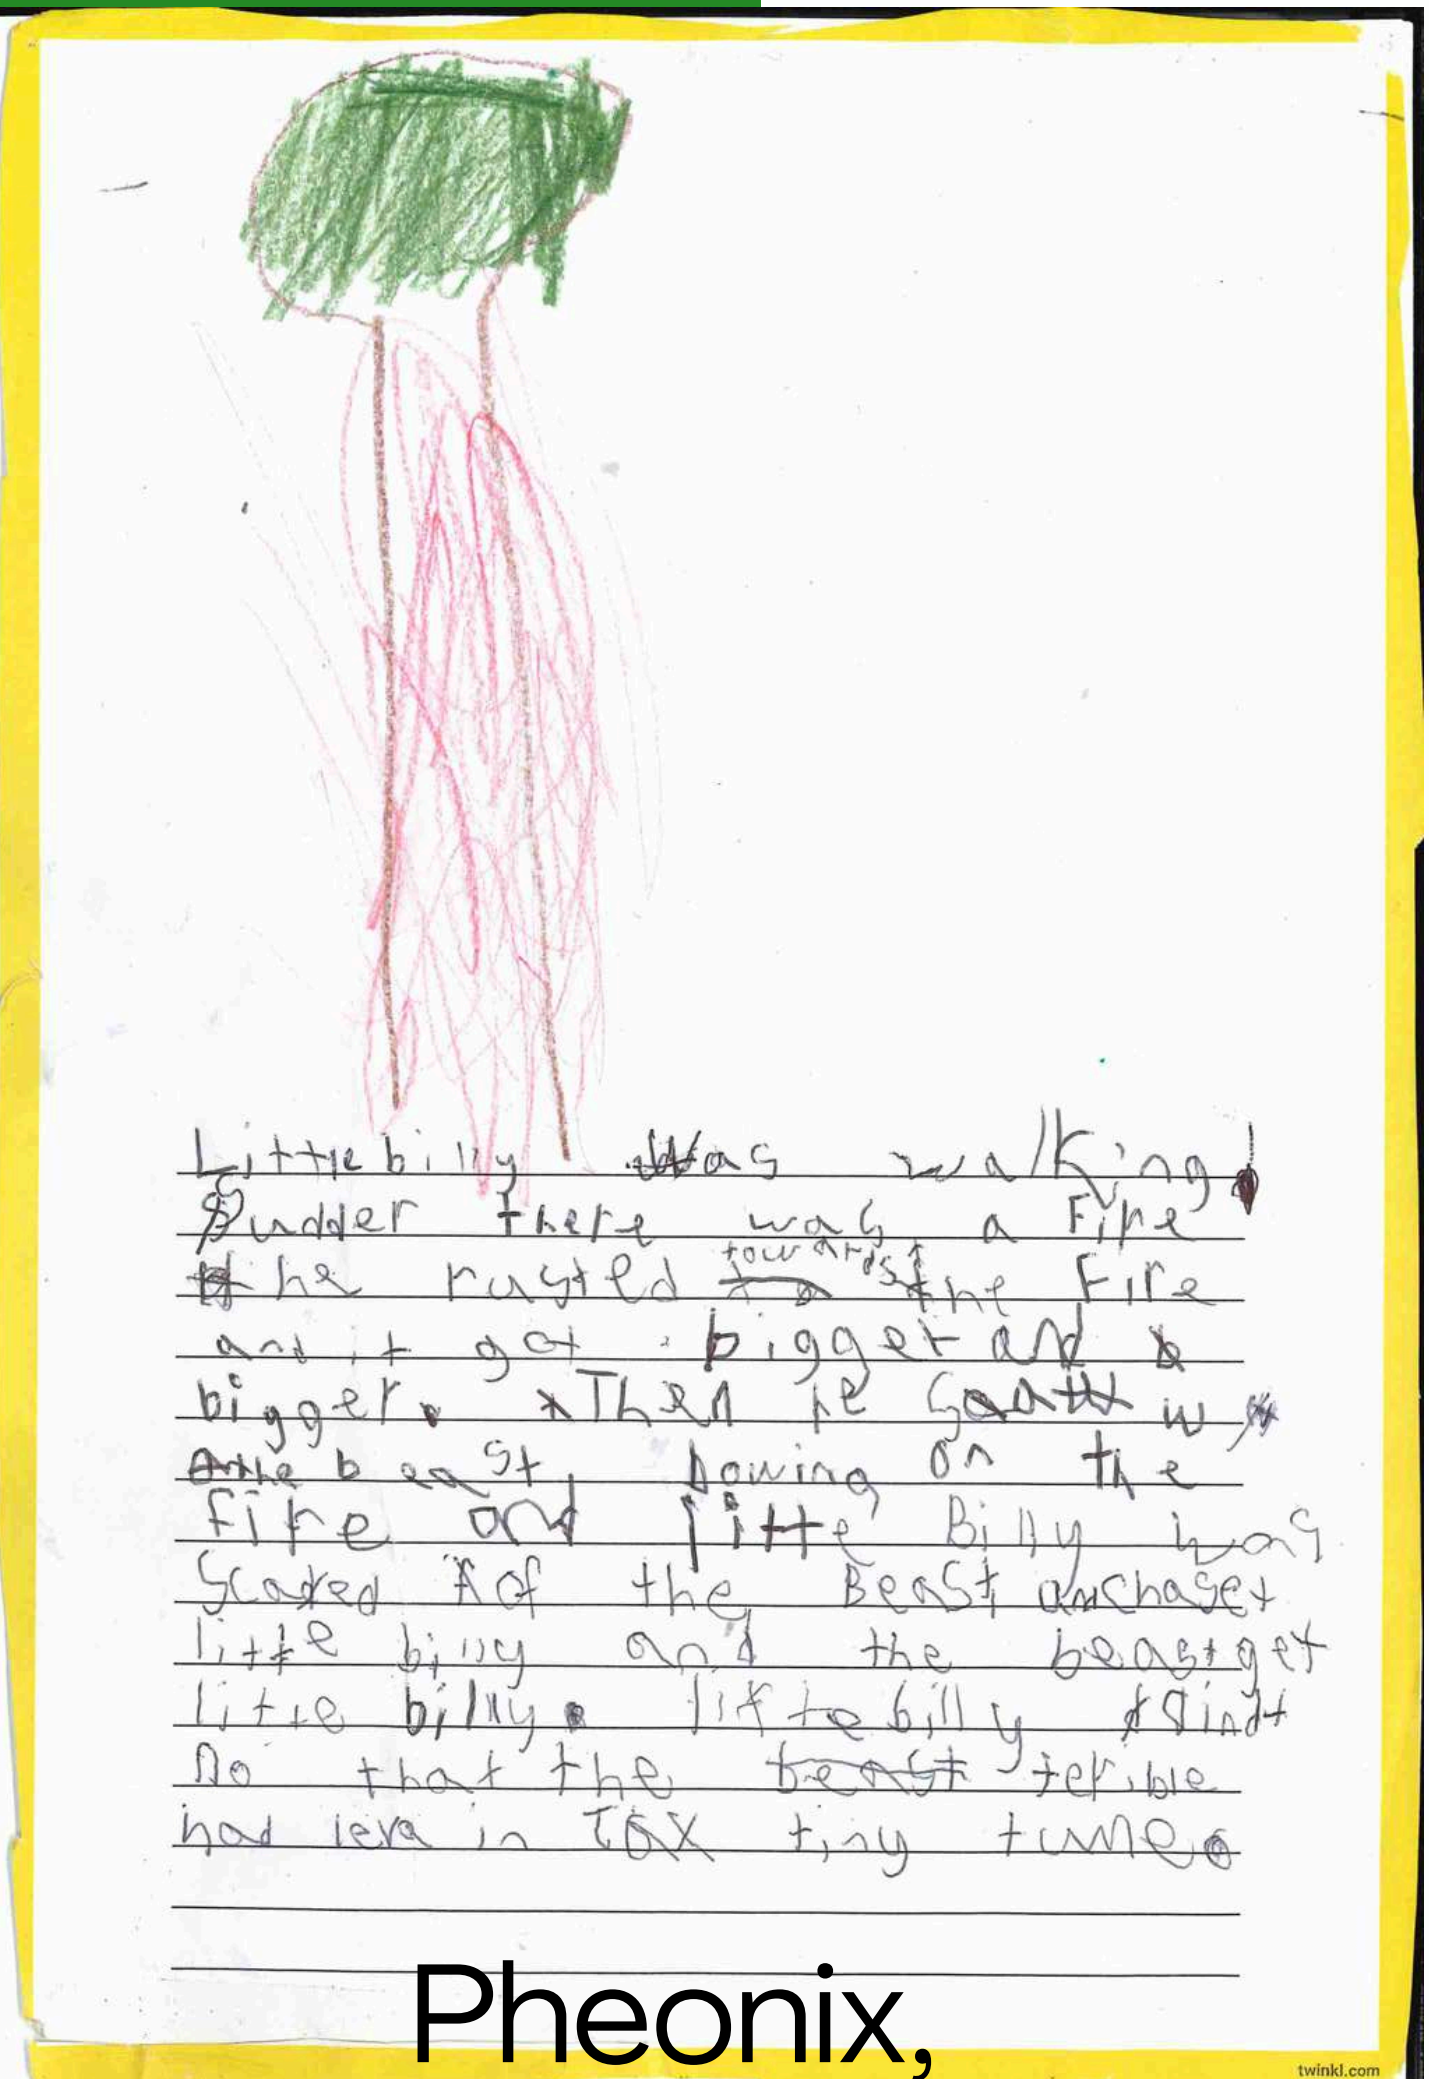 Little billy was walking
Sudden there was a Fire
he rusted towards the Fire
and it got bigger and
bigger. Then he
the beast, bowing on the
fire and litte Billy was
Scared of the Beast, anchaset
litte billy and the beast get
little billy. litte billy
no that the terible
had leva in tiny tune.
Pheonix,
twinkl.com